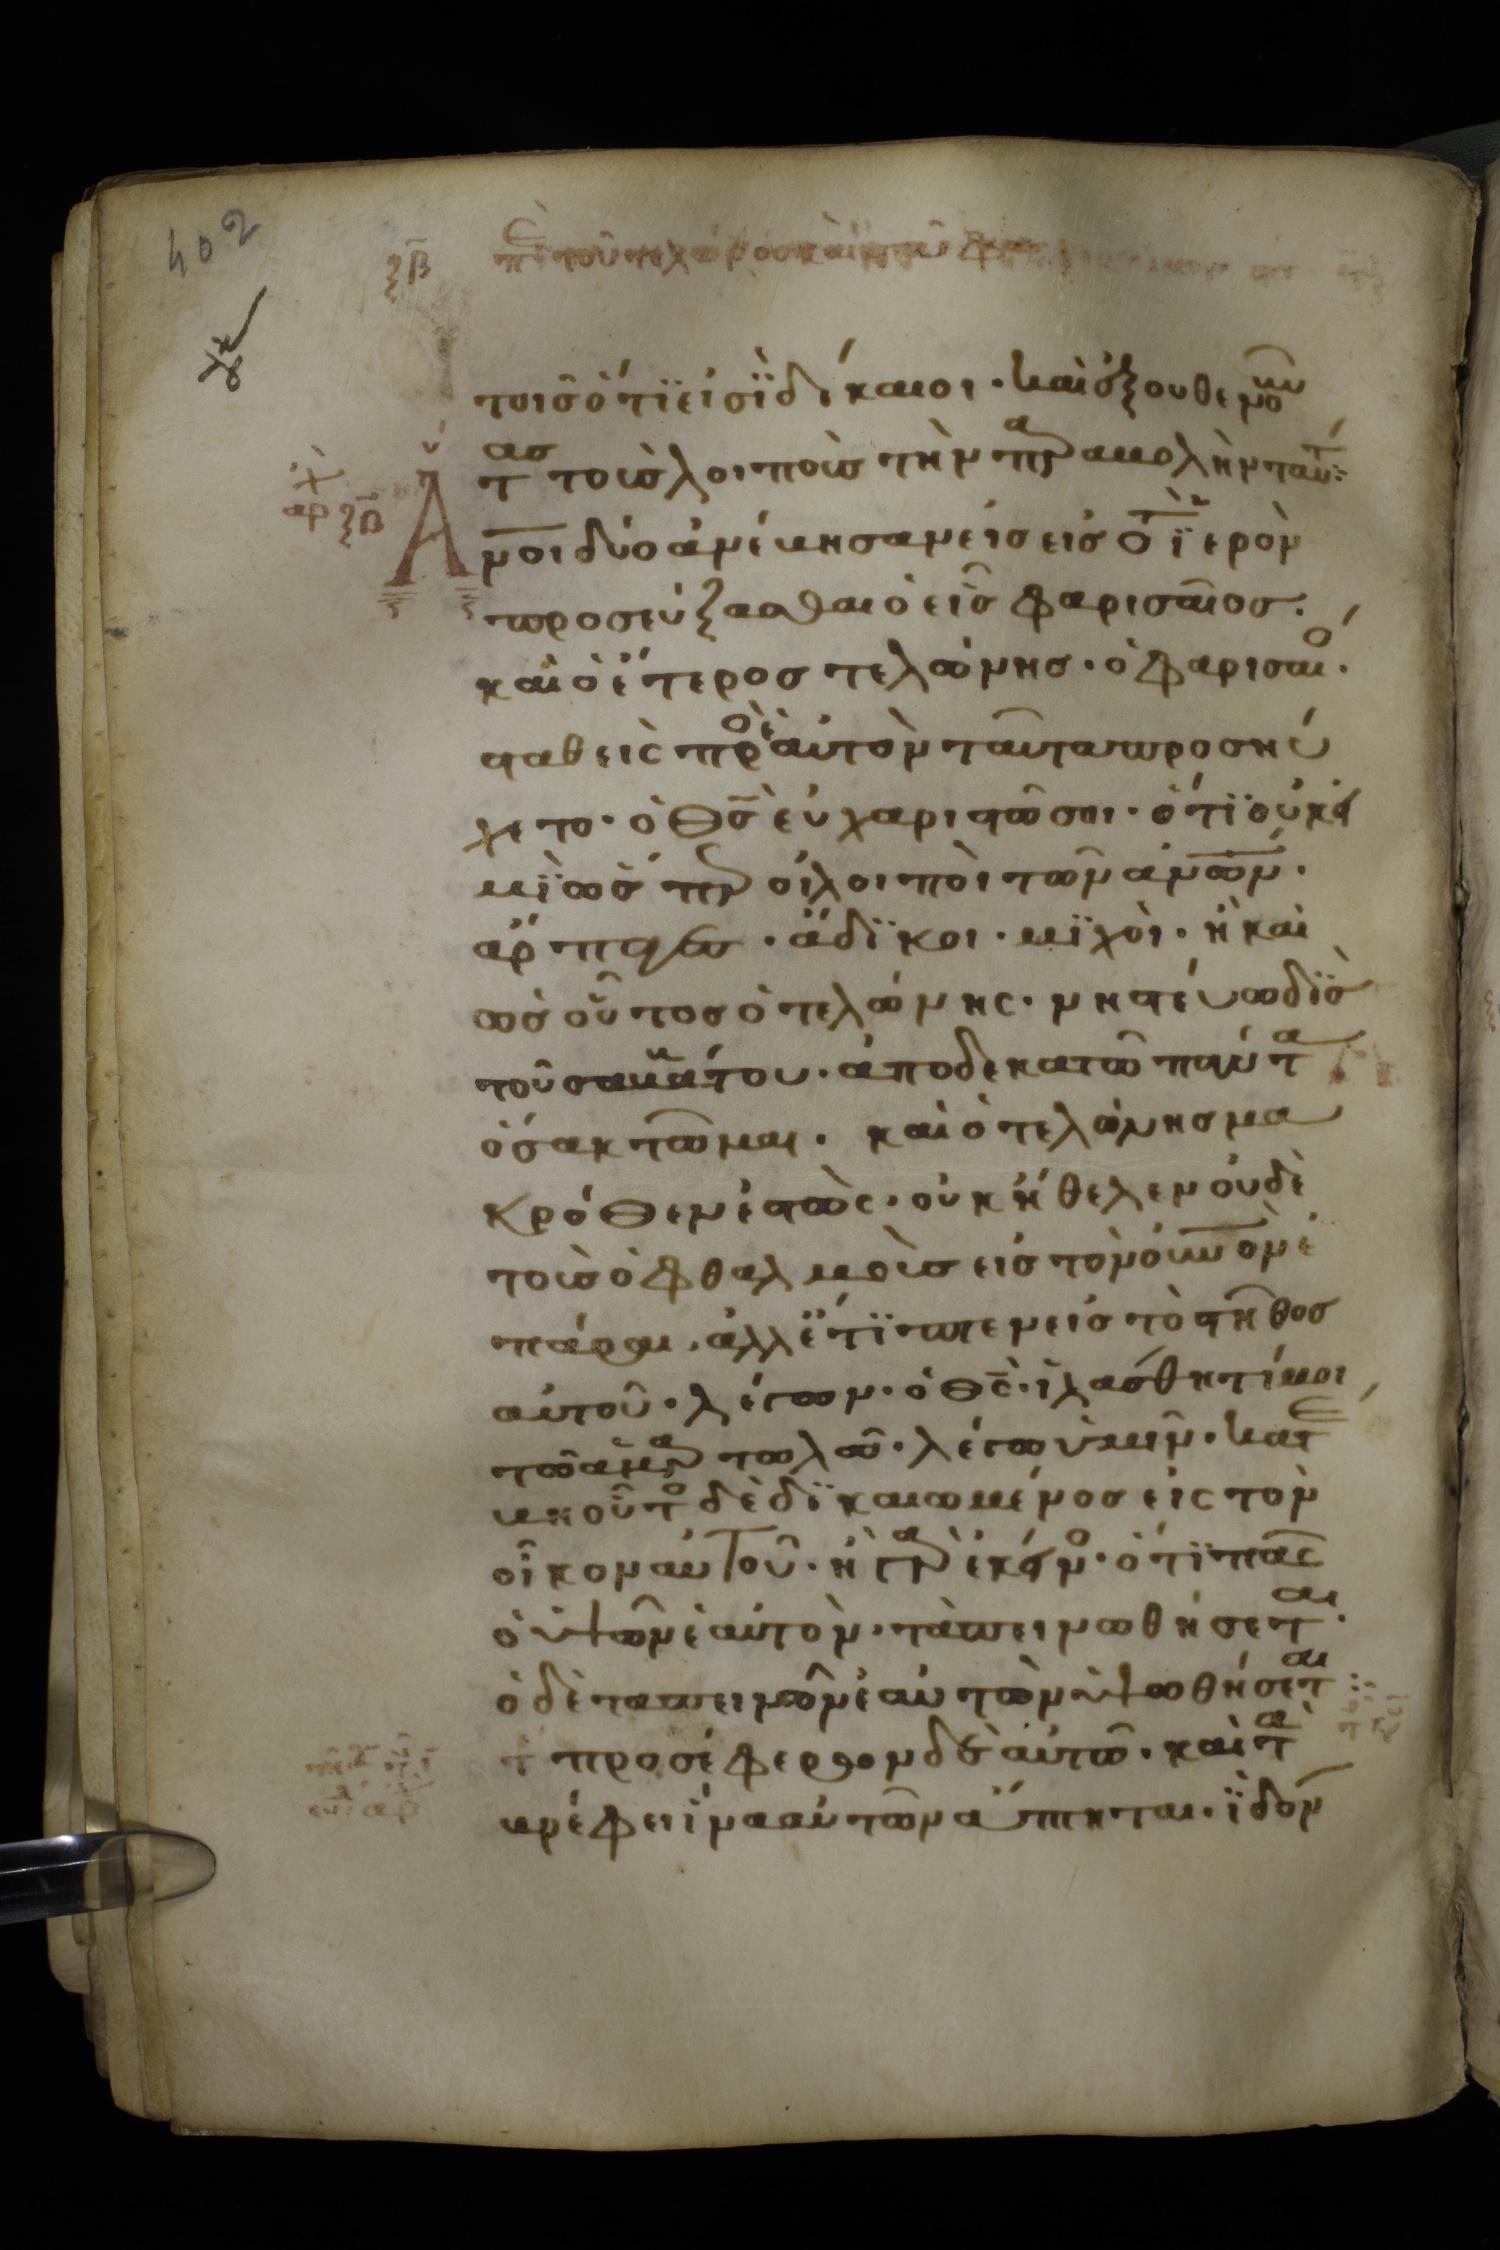 402
ξβ
πε του τελώρου καὶ του φαρ
τοισ ὅτϊ εἰσϊ δίκαιοι · καὶ ἐξουθενοῦν
τασ τοὺσ λοιποὺσ τὴν παραβολὴν ταύτ :
ξβ Ἄνοι δύο ἀνέβησαν εἰσ εἰσ τὸ ϊερὸν
προσεύξασθαι ὁ εἷσ φαρισαῖοσ ·
καὶ ὁ ἕτεροσ τελώνησ · ὁ φαρισαῖο ·
σταθεὶς προσ ἑαυτὸν ταῦτα προσηύ
χετο · ὁ θσ εὐχαριστῶ σοι · ὅτϊ οὐκ εἰ
μϊ ὡσ περ οἱ λοιποὶ τῶν ἀνων ·
ἅρπαγεσ · ἄδϊκοι · μϊχοὶ · ἢ καὶ
ὡσ οὗτοσ ὁ τελώνης · νηστεύω δὶσ
τοῦ σαββάτου · ἀποδεκατῶ πάντα
ὅσα κτῶμαι · καὶ ὁ τελώνησ μα
κρόθεν ἑστὼς · οὐκ ἤθελεν οὐδὲ
τοὺσ ὀφθαλμοὺσ εἰσ τὸν οὐνον ἐ
πάραι · ἀλλ ἔτϊπτεν εἰσ τὸ στῆθοσ
αὐτοῦ · λέγων · ὁ θς · ἱλάσθητί μοι
τῶ ἁμαρτωλῶ · λέγω ὑμῖν · κατέ
βη οὗτο δὲδϊκαιωμένοσ εἰς τὸν
οἶκον αυτοῦ · ἢ γὰρ ἐκεῖνο · ὅτϊ πᾶς
ὁ ὑψῶν ἑαὐτὸν · τἀπεινωθήσεται ·
ὁ δὲ ταπεινῶν ἑαὐτὼν ὑψωθήσεται :
προσέφερον δὲ αὐτῶ · καὶ τὰ
βρέφει ἵνα αὐτῶν ἅπτηται · ϊδόν